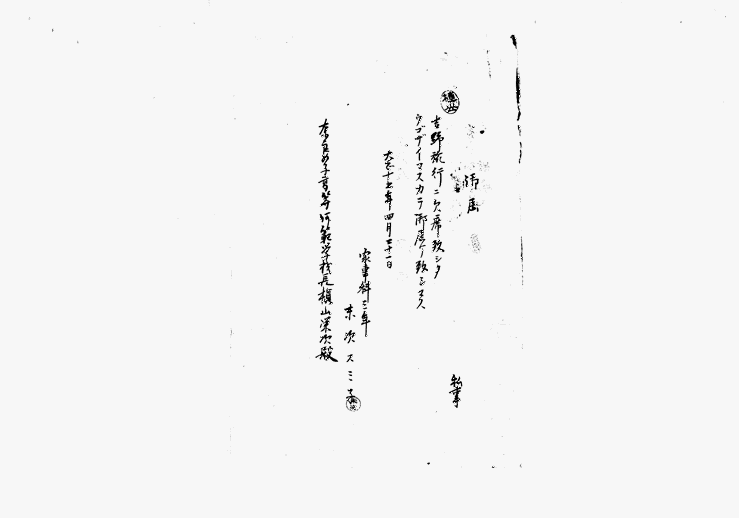 御届
私事
吉野旅行ニ欠席致シタ
ウゴザイマスカラ御届ケ致シマス
大正十五年四月二十一日
家事科三年
末次スミ子
奈良女子高等師範学校長槇山栄次殿